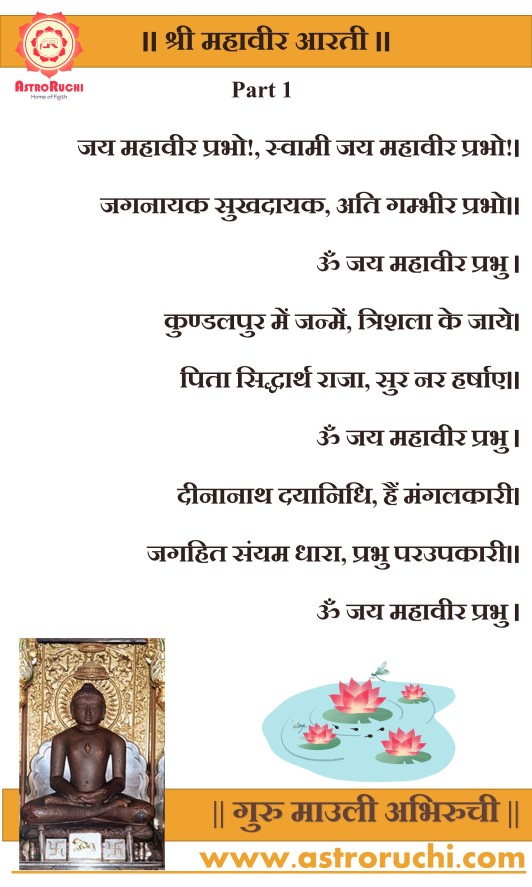 || श्री महावीर आरती ||
ASTRORUCHI
Part 1
जय महावीर प्रभो!, स्वामी जय महावीर प्रभो!।
जगनायक सुखदायक, अति गम्भीर प्रभो॥
ॐ जय महावीर प्रभु।
कुण्डलपुर में जन्में, त्रिशला के जाये।
पिता सिद्धार्थ राजा, सुर नर हर्षाए॥
ॐ जय महावीर प्रभु।
दीनानाथ दयानिधि, हैं मंगलकारी।
जगहित संयम धारा, प्रभु परउपकारी॥
ॐ जय महावीर प्रभु।
|| गुरु माउली अभिरुची ||
www.astroruchi.com